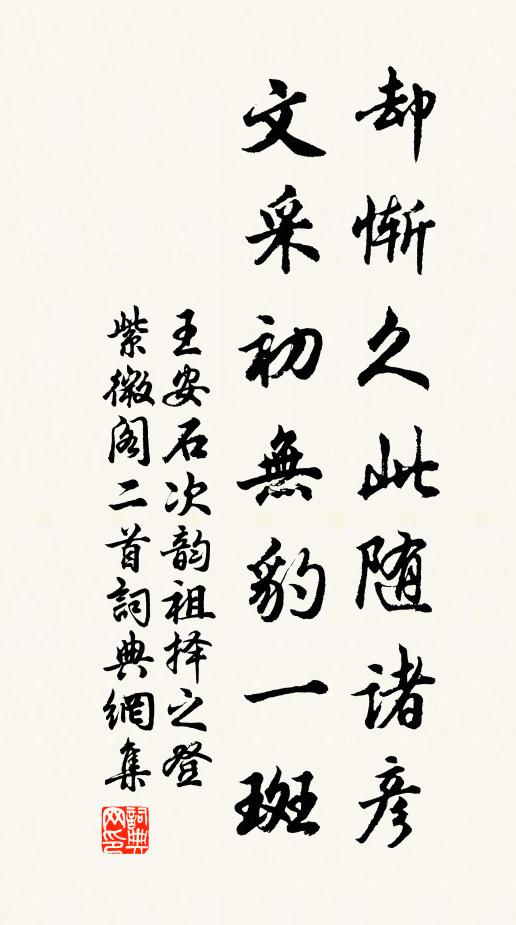 却惭久此随诸彦
文采初無豹一斑
王安石次韵祖择之登
紫微阁二首詞典網集
詞典
网印